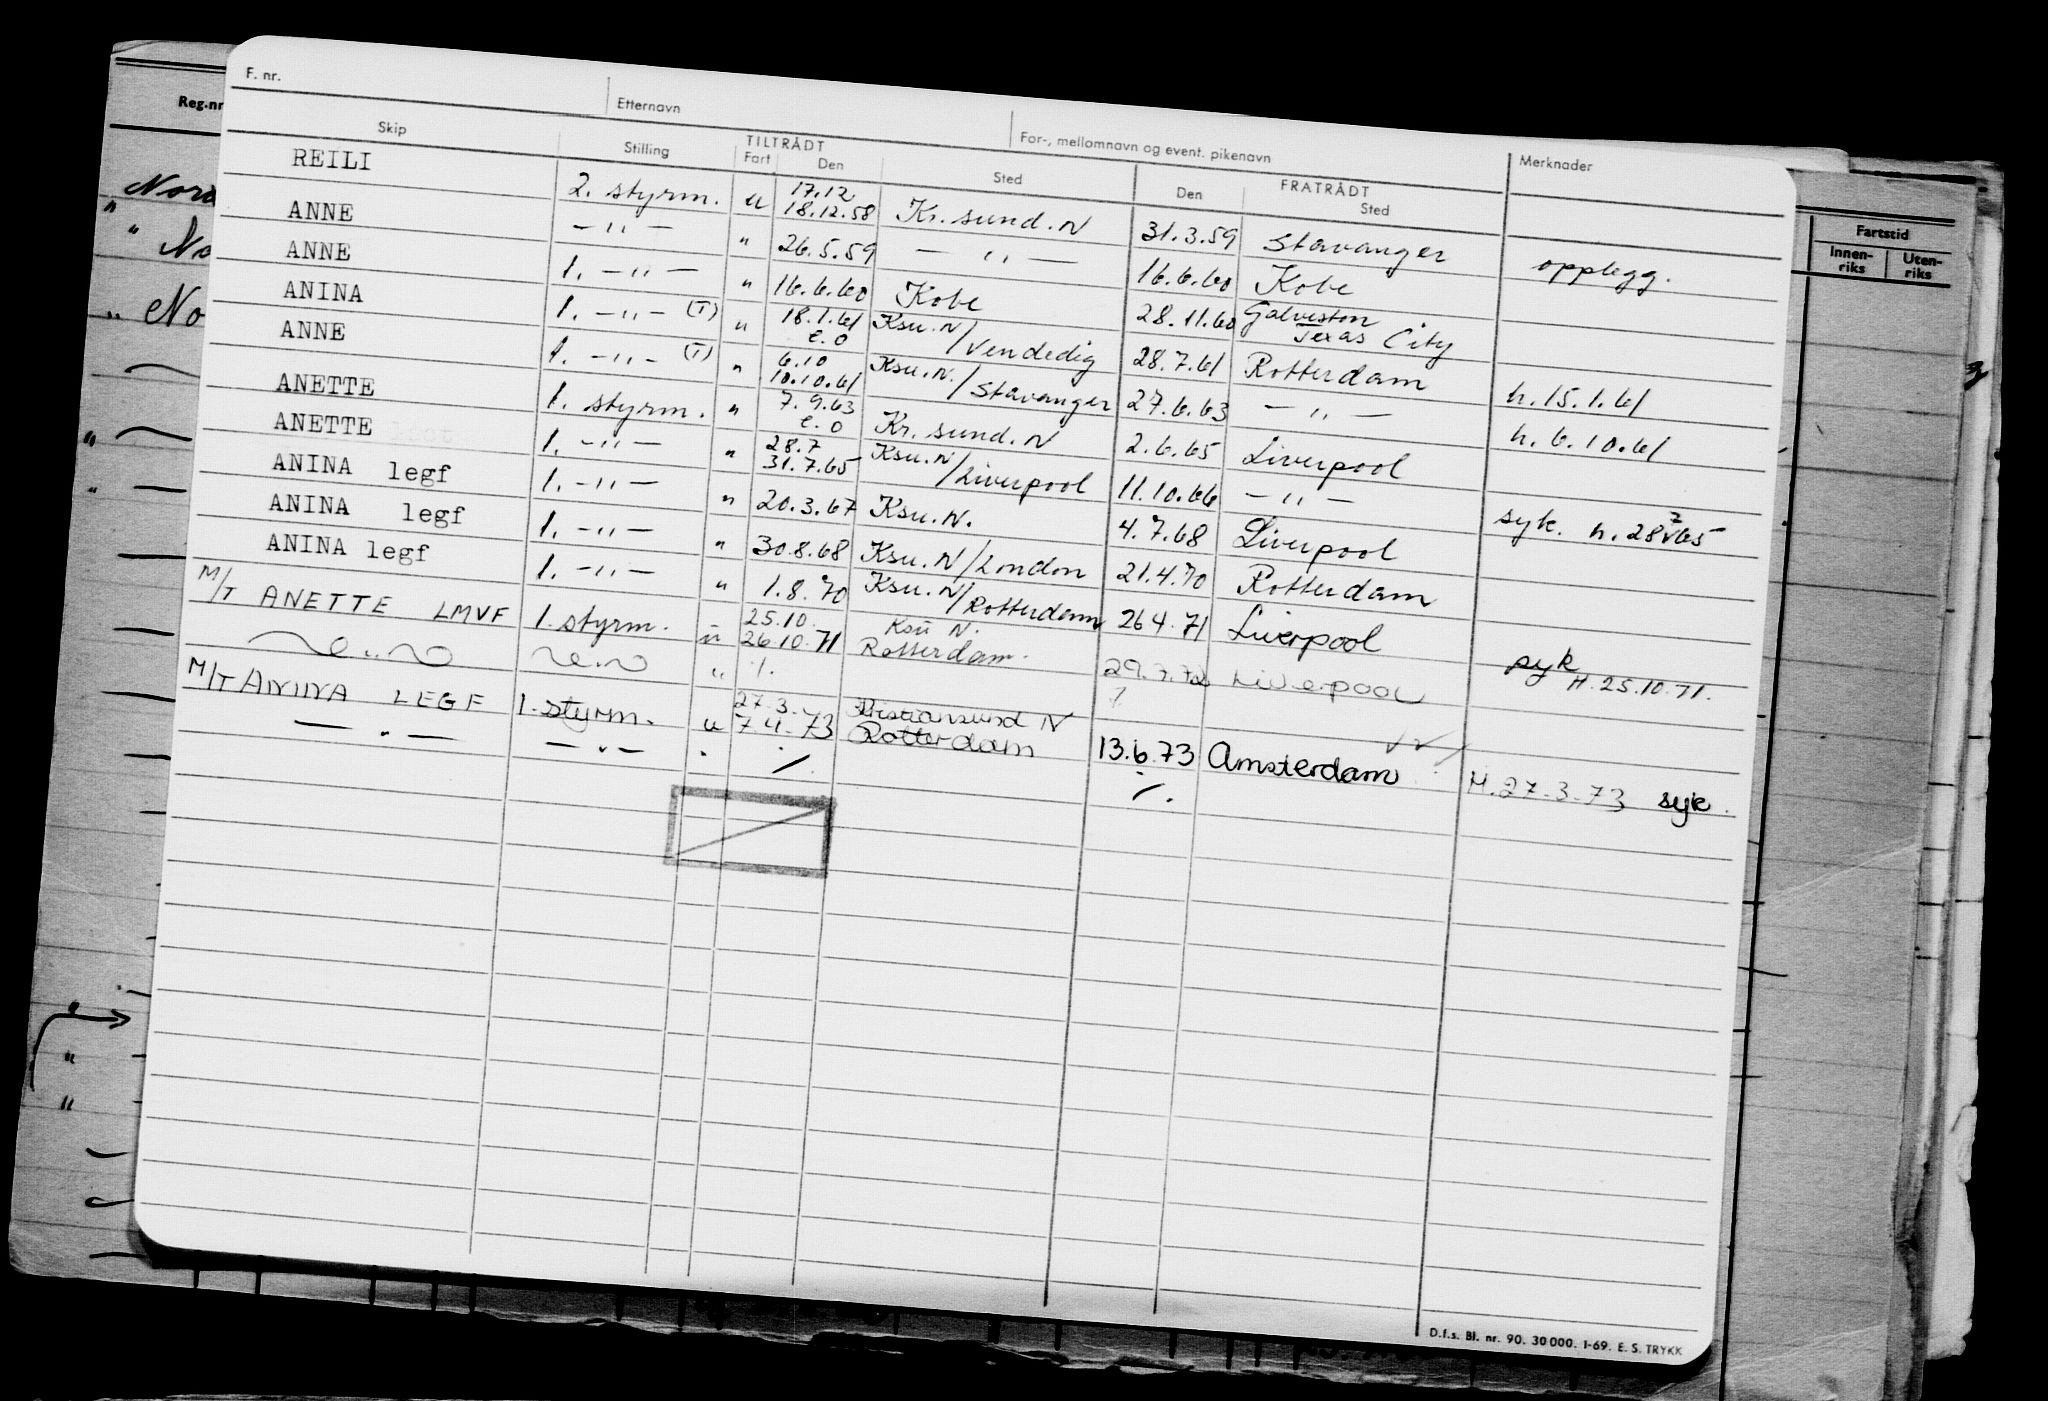 F. nr.
Etternavn
For-, mellomnavn og event. pikenavn
Merknader
Reg.nr
Skip
Stilling
TILTRÅDT
Fart Den Sted
FRATRÅDT
Den Sted
Fartstid
Innen-riks Uten-riks
REILI 2. styrm. u 17.12 18.12.58 Kr.sund.N 31.3.59 Stavanger opplegg.
ANNE -"- " 26.5.59 -"- 16.6.60 Kobe
ANNE 1. -"- " 16.6.60 Kobe 28.11.60 Galveston Texas City
ANINA 1. -"- (T) " 18.1.61 e.o Ksu.N/Vendedig 28.7.61 Rotterdam h.15.1.61
ANNE 1. -"- (T) " 6.10 10.10.61 Ksu.N./Stavanger 27.6.63 -"- h.6.10.61
ANETTE 1. styrm. " 7.9.63 e.o Kr.sund.N 2.6.65 Liverpool
ANETTE 1. -"- " 28.7 31.7.65 Ksu.N/Liverpool 11.10.66 -"- syk. h.28 7 65
ANINA legf 1. -"- " 20.3.67 Ksu.N. 4.7.68 Liverpool
ANINA legf 1. -"- " 30.8.68 Ksu.N/London 21.4.70 Rotterdam
ANINA legf 1. -"- " 1.8.70 Ksu.N/Rotterdam 26 4.71 Liverpool
M/T ANETTE LMVF 1. styrm. u 25.10. 26.10.71 Ksu N. Rotterdam. 29.7.72 Liverpool syk H.25.10.71.
" " " /.
M/T ANINA LEGF 1. styrm. u 27.3. 7.4.73 Kristiansund N Rotterdam 13.6.73 Amsterdam H.27.3.73 syk.
-"- -"- " /. /.
Nord
" No
" No
D.f.s. Bl. nr. 90. 30 000. 1-69. E. S. TRYKK